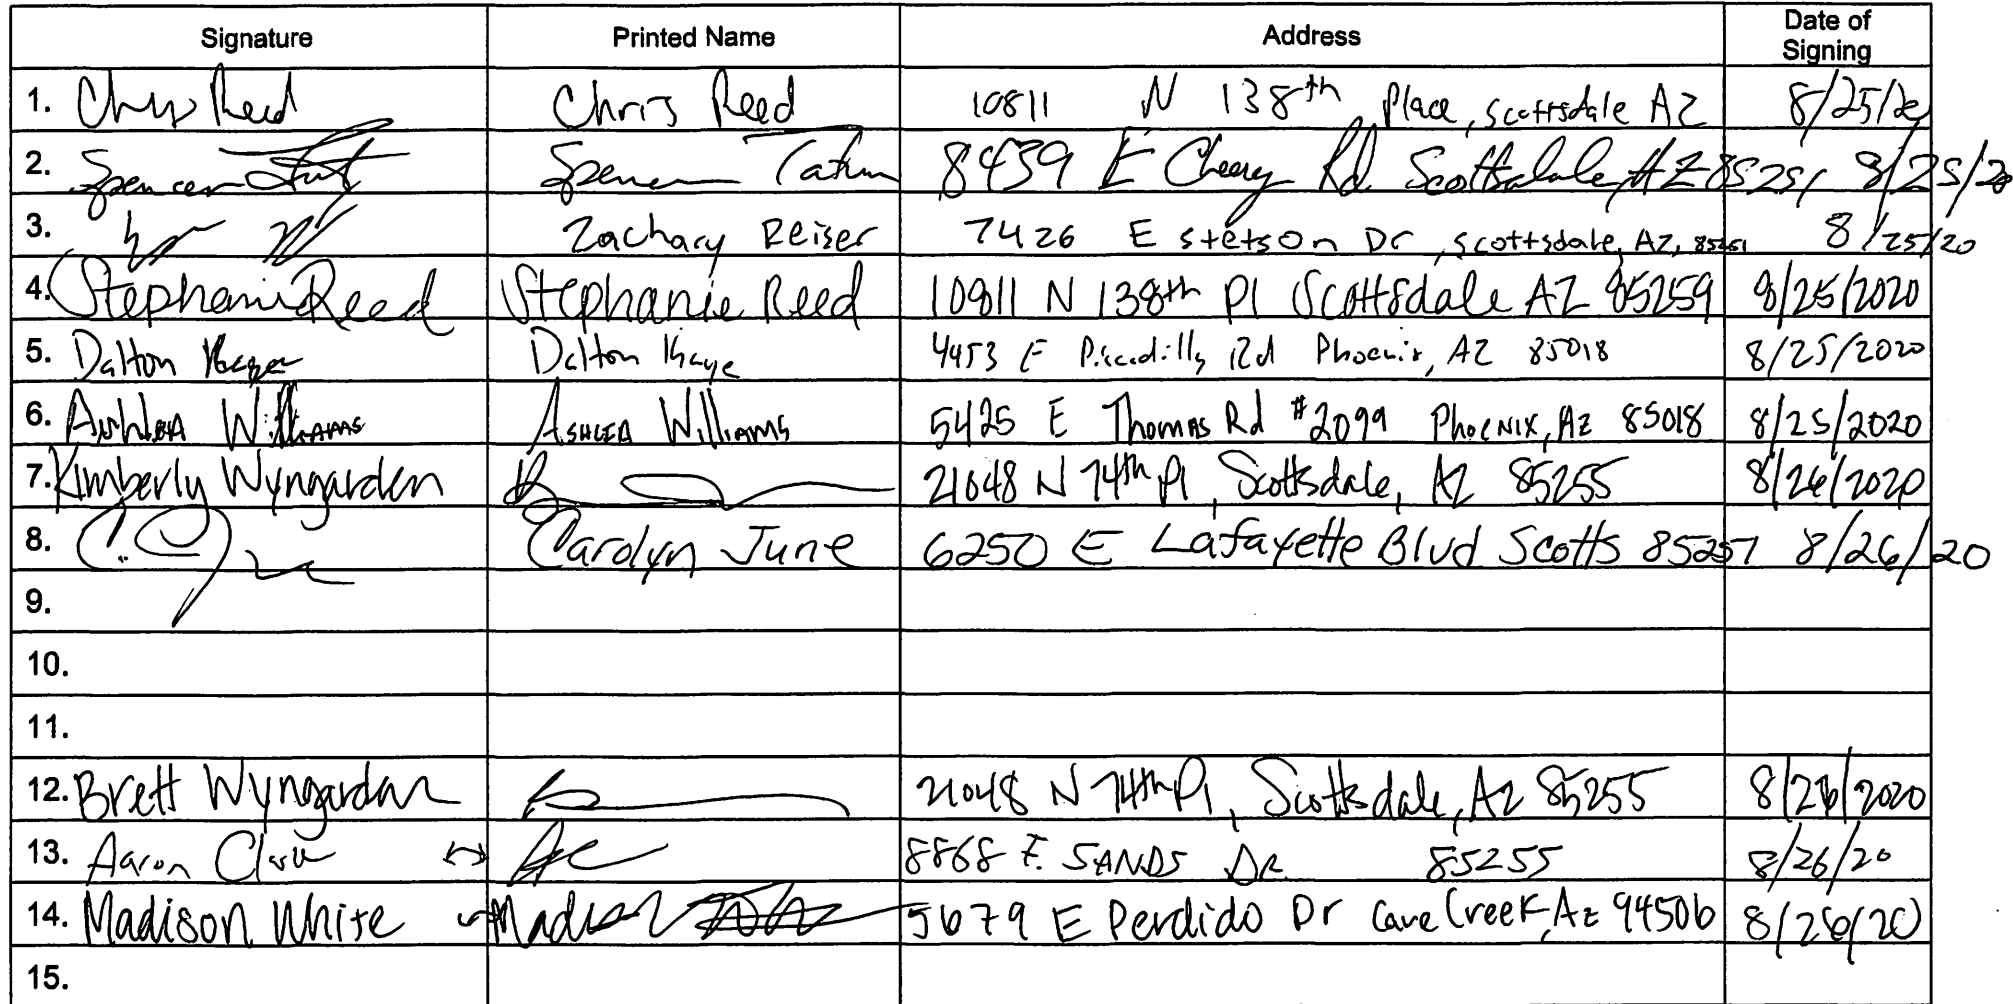 Signature Printed Name Address Date of Signing
1. Chris Reed Chris Reed 10811 N 138th Place, Scottsdale AZ 8/25/20
2. Spencer Spencer Tatum 8439 E Cheery Rd Scottsdale, AZ 85251 8/25/20
3. Zachary Reiser 7426 E Stetson Dr, Scottsdale, AZ, 85251 8/25/20
4. Stephanie Reed Stephanie Reed 10811 N 138th Pl Scottsdale AZ 85259 8/25/2020
5. Dalton Kaye Dalton Kaye 4453 E Piccadilly Rd Phoenix, AZ 85018 8/25/2020
6. Ashlea Williams Ashlea Williams 5425 E Thomas Rd #2099 Phoenix, AZ 85018 8/25/2020
7. Kimberly Wyngarden 21048 N 74th Pl, Scottsdale, AZ 85255 8/26/2020
8. Carolyn June 6250 E Lafayette Blvd Scotts 85251 8/26/20
9.
10.
11.
12. Brett Wyngarden 21048 N 74th Pl, Scottsdale, AZ 85255 8/26/2020
13. Aaron Clark ↔ 8868 E. SANDS DR 85255 8/26/20
14. Madison White Madison 5679 E Perdido Dr Cave Creek, Az 94506 8/26/20
15.